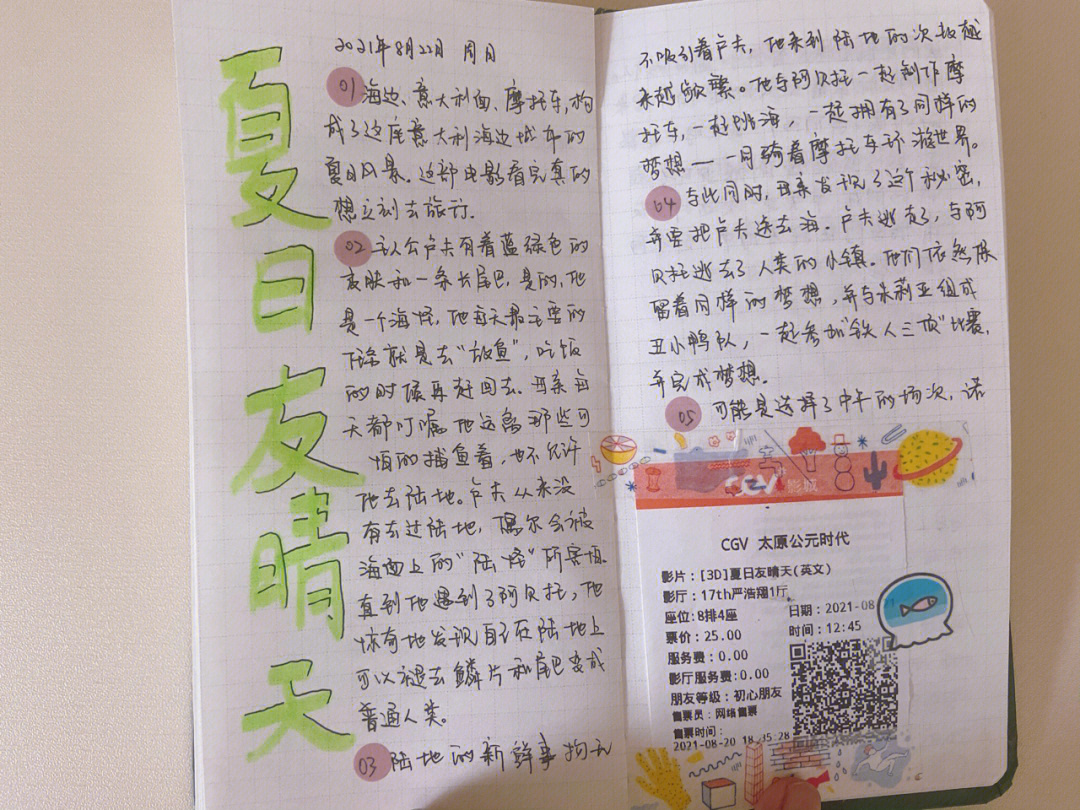 夏日友晴天
2021年8月22日 周日
01 海边、意大利面、摩托车，构
成了这座意大利海边城市的
夏日风景。这部电影看完真的
想立刻去旅行.
02 主人公卢夫有着蓝绿色的
皮肤和一条长尾巴，是的，他
是一个海怪，他每天最主要的
任务就是去“放鱼”，吃饭
的时候再赶回去。母亲每
天都叮嘱他远离那些可
恨的捕鱼者，也不允许
他去陆地。卢夫从来没
有去过陆地，偶尔会被
海面上的“陆怪”所害怕.
直到他遇到了阿贝托，他
惊奇地发现自己在陆地上
可以褪去鳞片和尾巴变成
普通人类。
03 陆地的新鲜事物无
不吸引着卢夫，他来到陆地的次数越
来越频繁。他与阿贝托一起制作摩
托车，一起跳海，一起拥有了同样的
梦想——骑着摩托车环游世界。
04 与此同时，母亲发现了这个秘密，
并要把卢夫送去海。卢夫逃走了，与阿
贝托逃去了人类的小镇。他们依然保
留着同样的梦想，并与朱莉亚组成
丑小鸭队，一起参加“铁人三项”比赛，
并完成梦想.
05 可能是选择了中午的场次，诺
CGV 影城
CGV 太原公元时代
影片：[3D]夏日友晴天(英文)
影厅：17th严浩翔1厅
座位:8排4座 日期：2021-08
票价：25.00 时间：12:45
服务费：0.00
影厅服务费:0.00
朋友等级：初心朋友
售票员：网络售票
售票时间：
2021-08-20 18 35:28